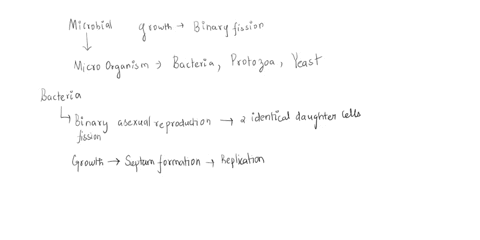 Microbial growth → Binary fission
↓
Micro Organism → Bacteria, Protozoa, Yeast
Bacteria
↳ Binary asexual reproduction → 2 identical daughter cells
fission
Growth → Septum formation → Replication